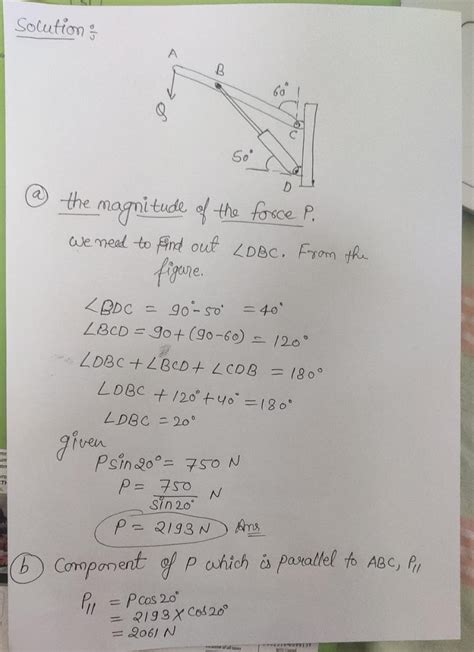 Solution:
A
B
60°
Q
C
50°
D
(a) the magnitude of the force P.
we need to find out ∠DBC. From the
figure.
∠BDC = 90°-50° = 40°
∠BCD = 90+(90-60) = 120°
∠DBC + ∠BCD + ∠CDB = 180°
∠DBC + 120° + 40° = 180°
∠DBC = 20°
given
P sin20° = 750 N
P = 750/sin20° N
P = 2193 N Ans
(b) Component of P which is parallel to ABC, P||
P|| = P cos20°
= 2193 × cos20°
= 2061 N